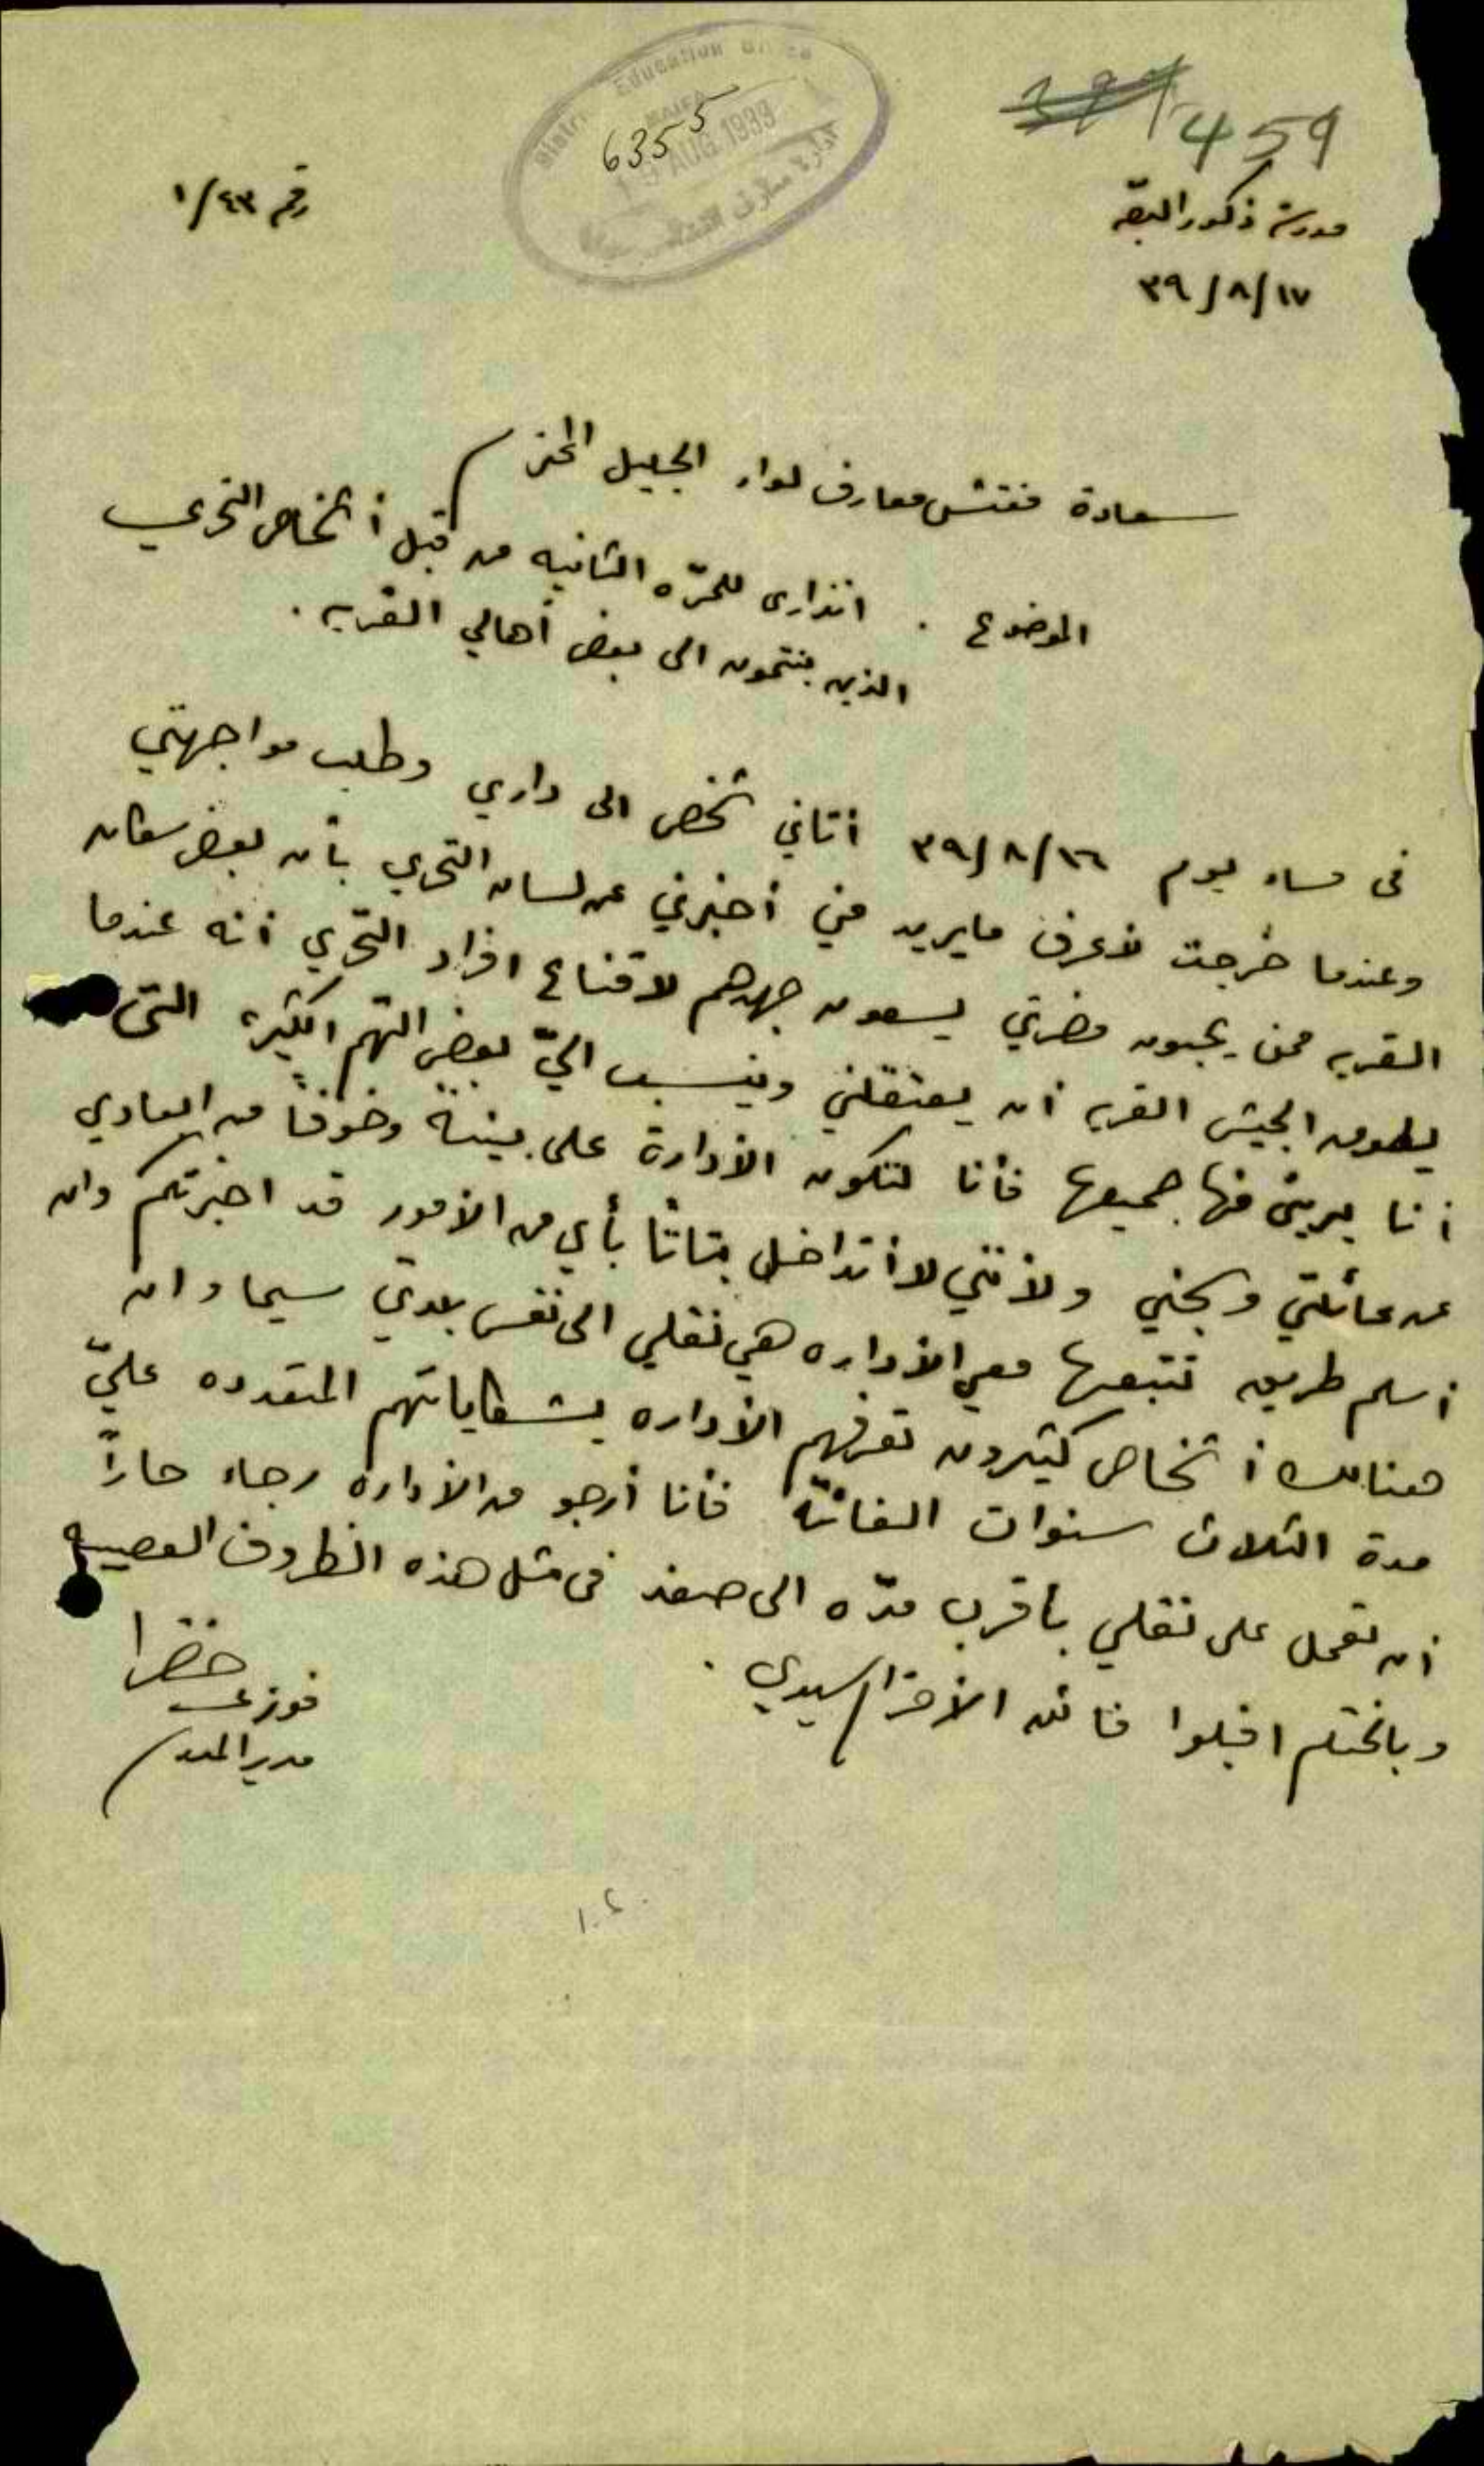 459
District Education Office
HAIFA
AUG 1939
6355
ادارة معارف
رقم ٤٣/١
مدرسة ذكور
٣٩/٨/١٧
سعادة مفتش معارف لواء الجليل المحترم
الموضوع . انذاري للمرّه الثانيه من قبل أشخاص التحري
الذين ينتمون الى بعض أهالي القريه .
في مساء يوم ٣٩/٨/١٦ أتاني شخص الى داري وطلب مواجهتي
وعندما خرجت لأعرف مايريد مني أخبرني عن لسان التحري بأن بعض سكان
القريه ممن يحبون مضرتي يسعون جهدهم لاقناع افراد التحري أنه عندما
يطوون الجيش القريه أن يعتقلني وينسب اليّ بعض التهم الكثيرة التي
أنا بريئ منها جميعها فأنا لتكون الأدارة على بينةً وخوفاً من
عن عائلتي وسجني ولأنني لا أتداخل بتاتاً بأي من الأمور قد اخبرتكم وان
أسلم طريق تتبعها معي الأداره هي نقلي الى نفس بلدتي سيما وان
هنالك أشخاص كثيرون تعرفهم الأداره بشكاياتهم المتعدده عليّ
مدة الثلاث سنوات الفائتة فأنا أرجو من الأداره رجاء حاراً
أن تعمل على نقلي بأقرب مدّه الى صفد في مثل هذه الظروف العصيبه
وبالختام اقبلوا فائق الأحترام سيدي .
فوزي خضرا
مدير المدرسة